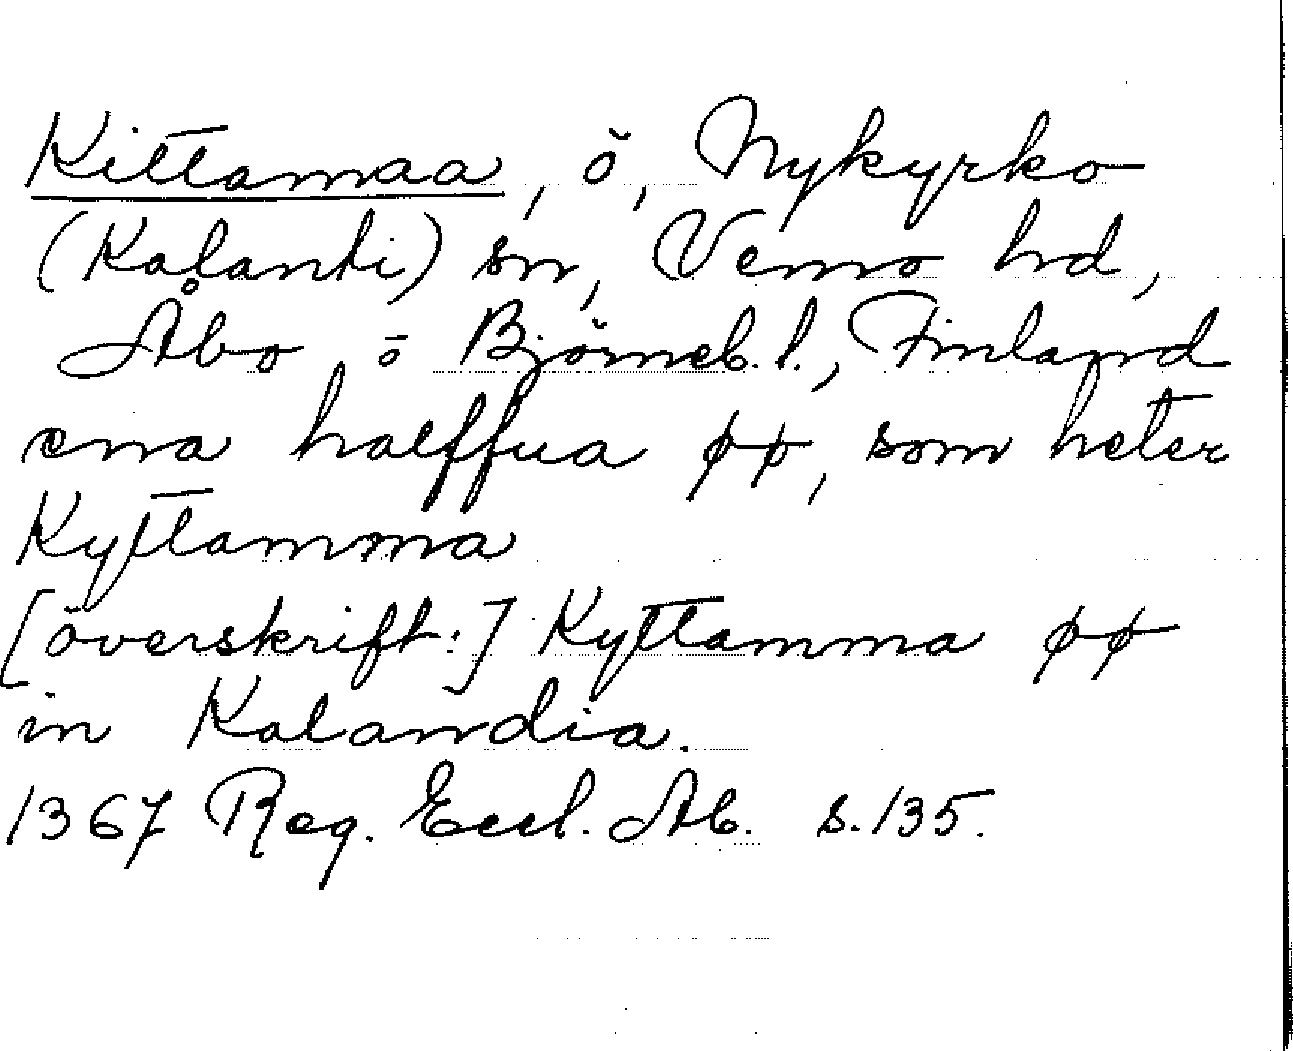 Kittamaa, ö, Nykyrko
(Kalanti) sn, Vemo hd,
Åbo o Björneb. l., Finland
ena halffua øø, som heter
Kyttamma
[överskrift:] Kyttamma øø
in Kalandia.
1367 Reg. Eccl. Ab. s. 135.